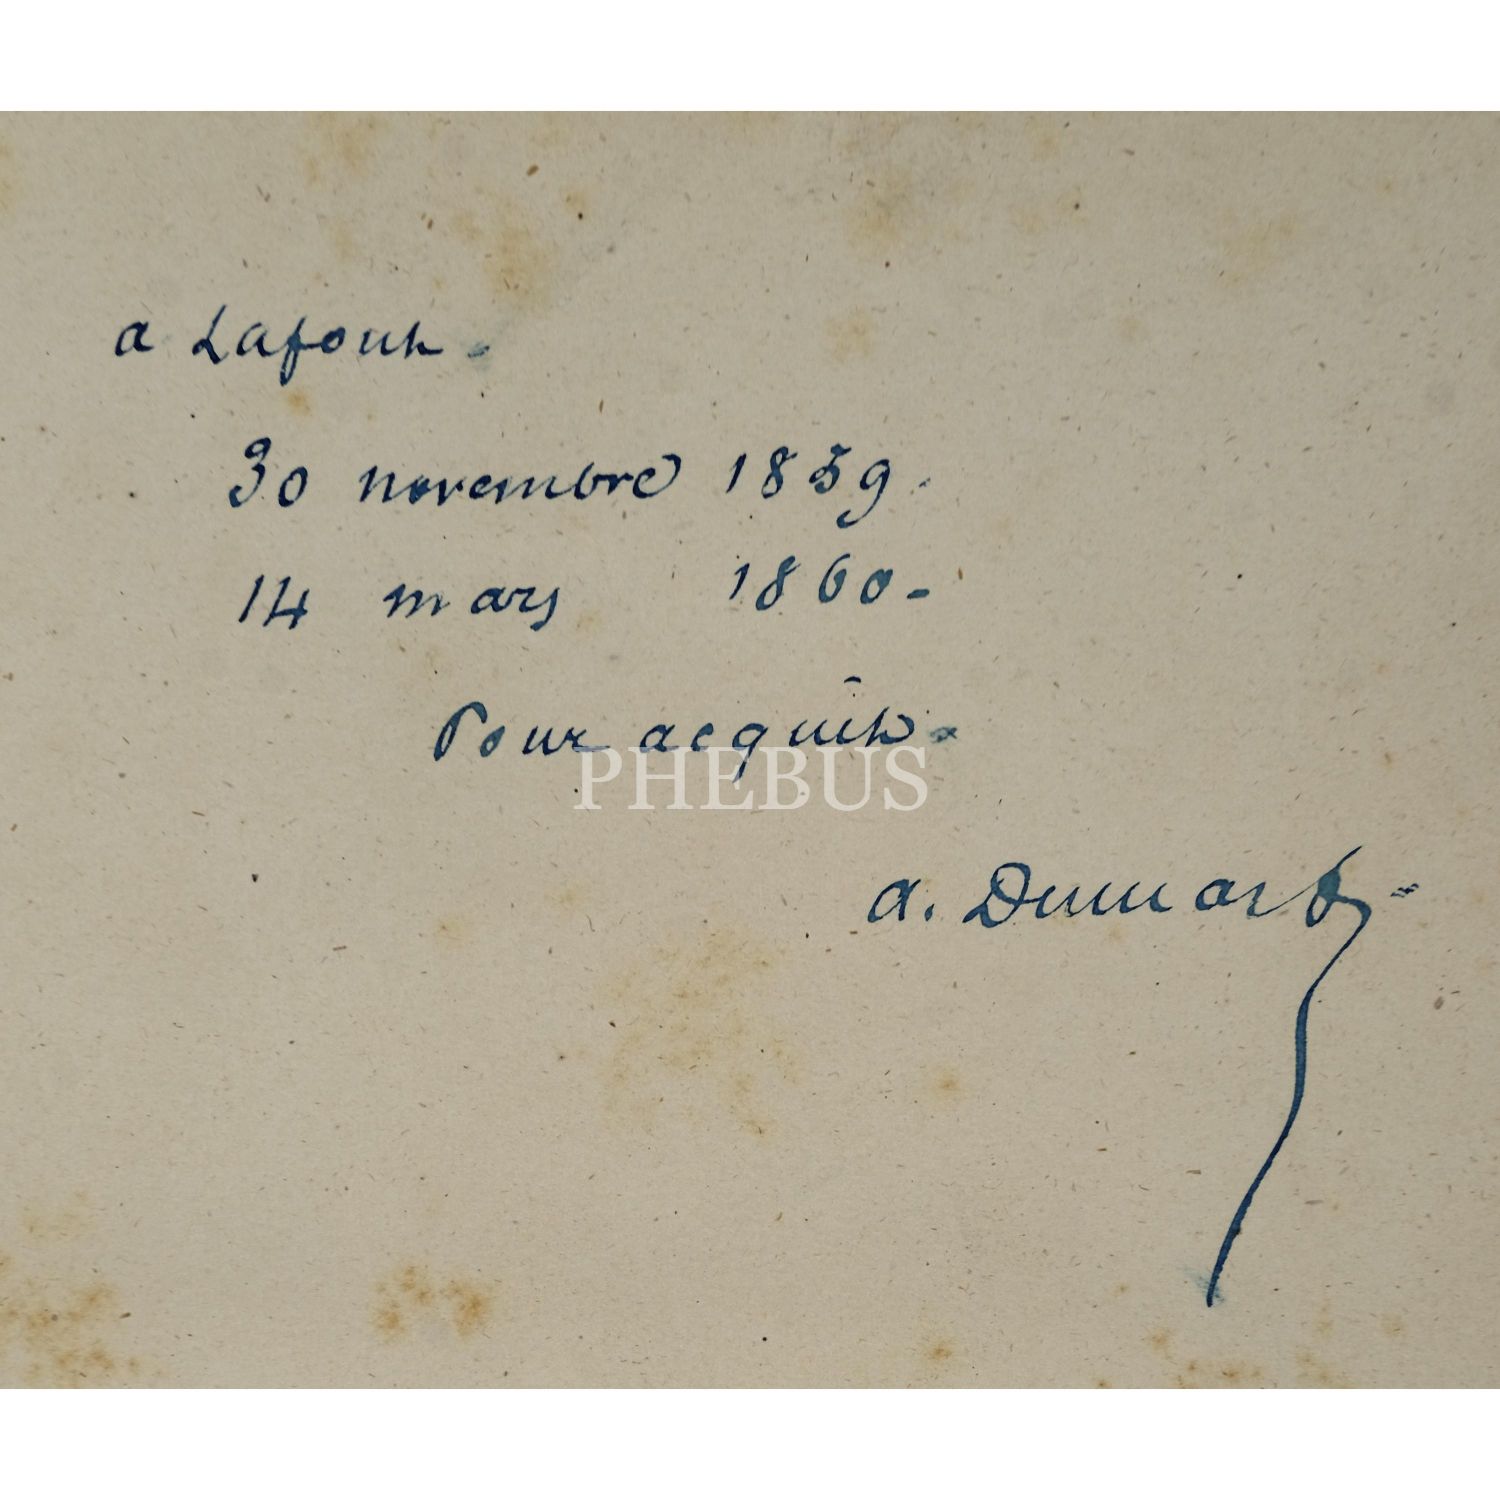 a Lafont.
30 novembre 1859.
14 mars 1860.
Pour acquit.
PHEBUS
a. Dumas